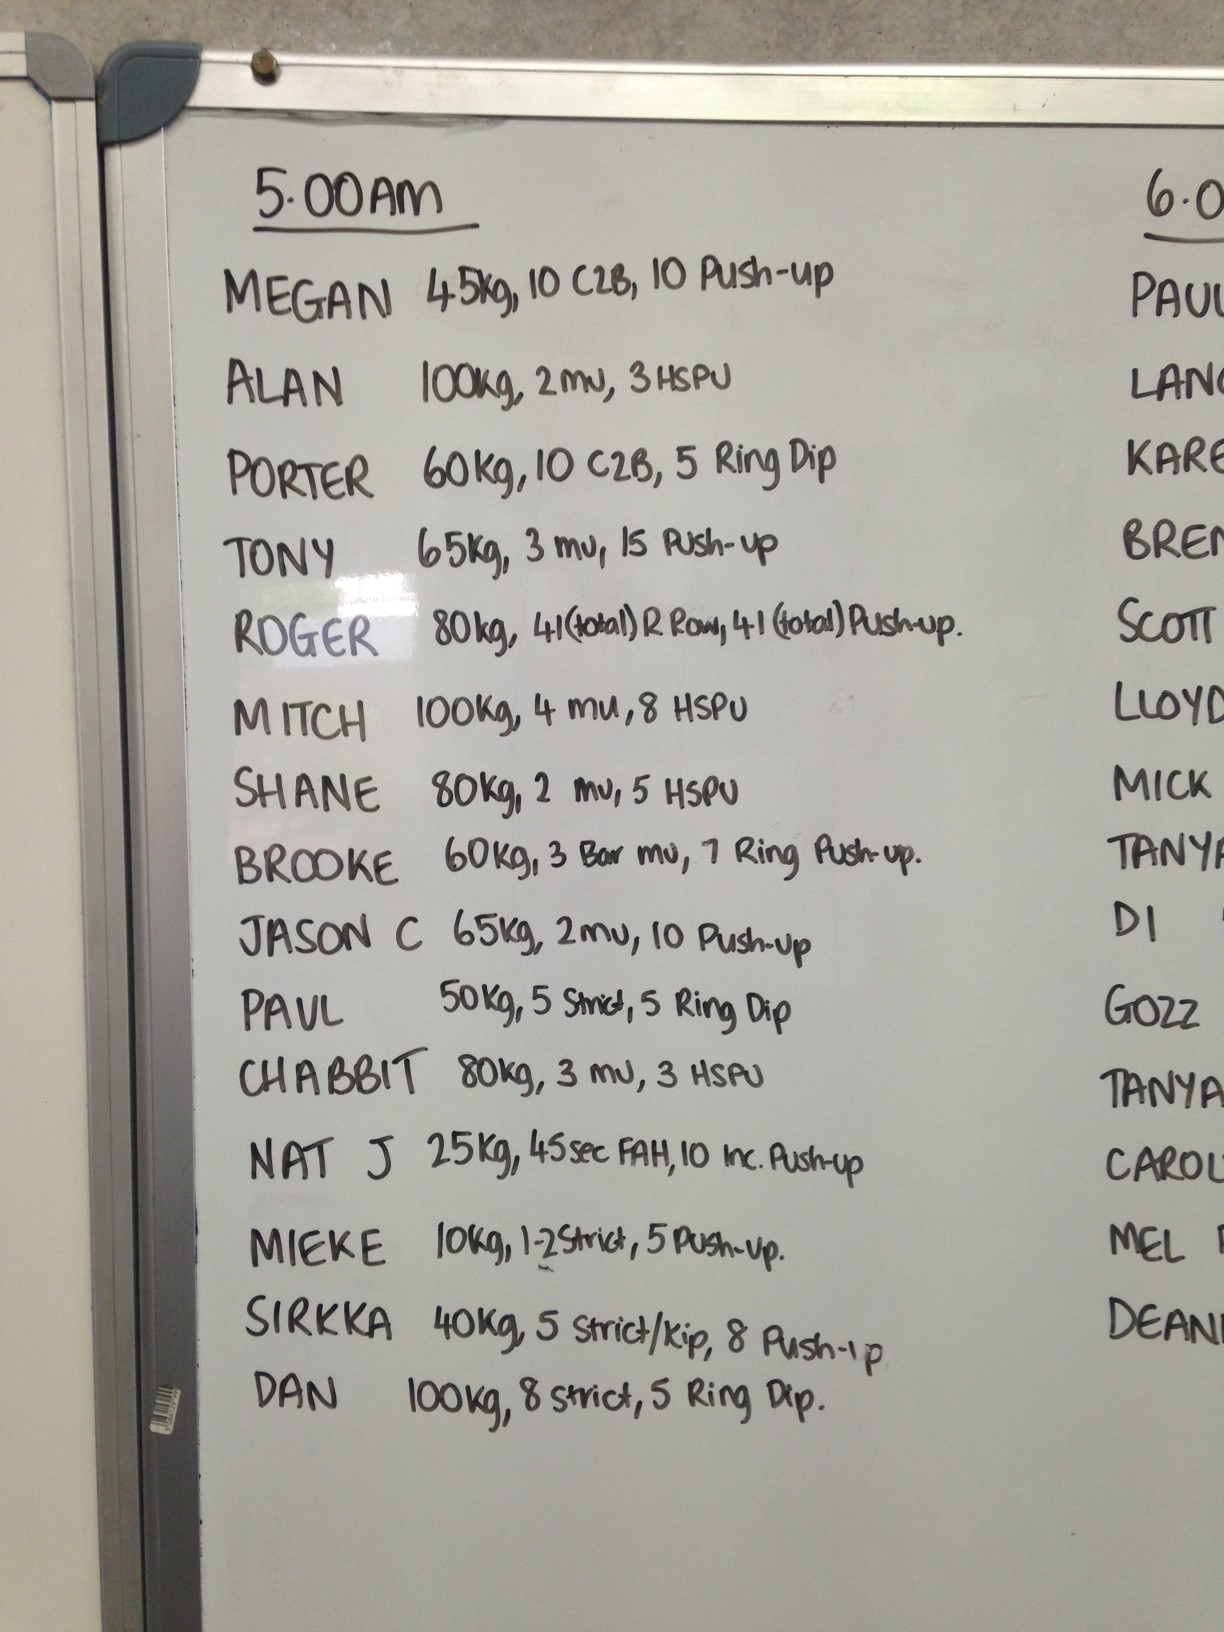 5.00AM
MEGAN 45kg, 10 C2B, 10 Push-up
ALAN 100kg, 2mu, 3 HSPU
PORTER 60kg, 10 C2B, 5 Ring Dip
TONY 65kg, 3 mu, 15 Push-up
ROGER 80kg, 41(total) R Row, 41 (total) Push-up.
MITCH 100kg, 4 mu, 8 HSPU
SHANE 80kg, 2 mu, 5 HSPU
BROOKE 60kg, 3 Bar mu, 7 Ring Push-up.
JASON C 65kg, 2mu, 10 Push-up
PAUL 50kg, 5 Strict, 5 Ring Dip
CHABBIT 80kg, 3 mu, 3 HSPU
NAT J 25kg, 45sec FAH, 10 Inc. Push-up
MIEKE 10kg, 1-2 Strict, 5 Push-up.
SIRKKA 40kg, 5 Strict/Kip, 8 Push-up
DAN 100kg, 8 strict, 5 Ring Dip.
6.0
PAUL
LANC
KARE
BREN
SCOTT
LLOYD
MICK
TANYA
DI
GOZZ
TANYA
CAROL
MEL
DEAN